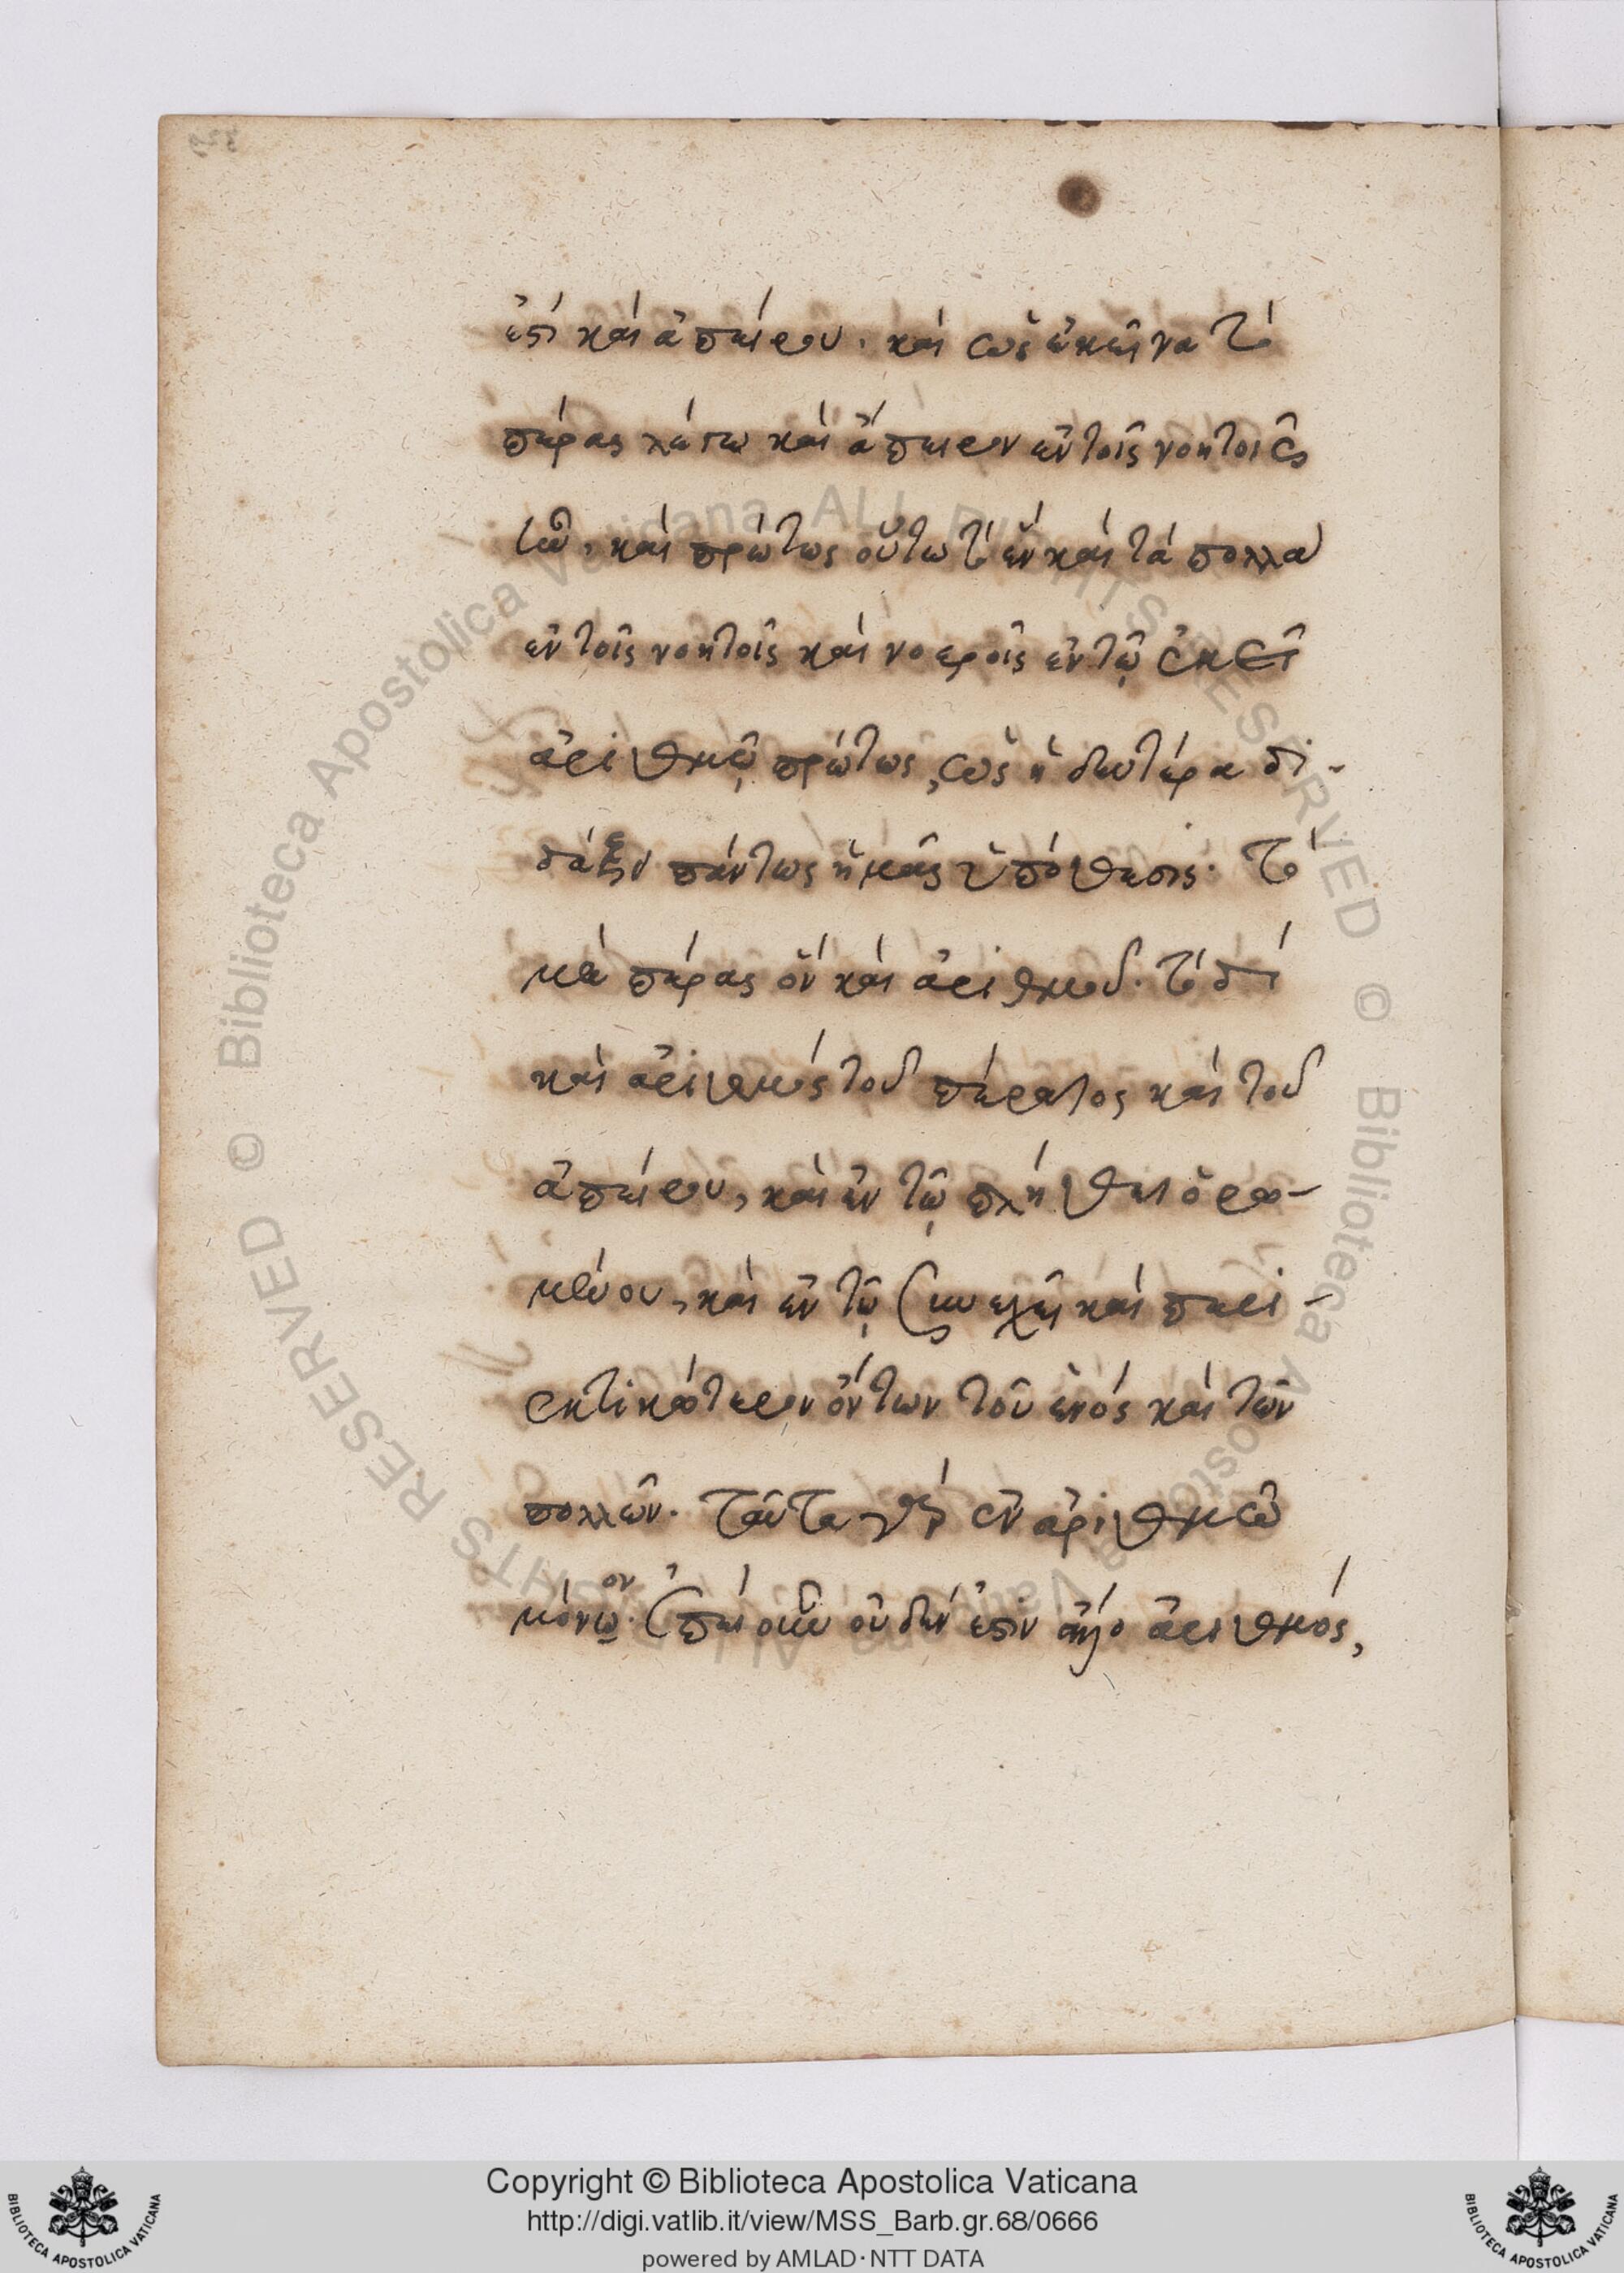 ἐστὶ καὶ ἀπείρου. καὶ ὡς ἐκεῖνα τὸ
πέρας λέγω καὶ ἄπειρον ἐν τοῖς νοητοῖς
ἦν, καὶ πρώτως οὕτω τὸ ἓν καὶ τὰ πολλὰ
ἐν τοῖς νοητοῖς καὶ νοεροῖς ἐν τῷ ἐκεῖ
ἀριθμῷ πρώτως, ὡς ἡ δευτέρα δι-
δάξει πάντως ἡμᾶς ὑπόθεσις. τὸ
μὲν πέρας ὂν καὶ ἀριθμοῦ. τὸ δὲ
καὶ ἀριθμὸς τοῦ πέρατος καὶ τοῦ
ἀπείρου, καὶ ἐν τῷ πλήθει ὁρω-
μένου, καὶ ἐν τῷ συνεχεῖ καὶ περι-
εκτικώτερον ὄντων τοῦ ἑνὸς καὶ τῶν
πολλῶν. ταῦτα γὰρ ἐν ἀριθμῷ
ον
μόνῳ. ἐπεὶ οὖν οὐδέν ἐστιν ἄλλο ἀριθμός,
Copyright © Biblioteca Apostolica Vaticana
http://digi.vatlib.it/view/MSS_Barb.gr.68/0666
powered by AMLAD·NTT DATA
BIBLIOTECA APOSTOLICA VATICANA
BIBLIOTECA APOSTOLICA VATICANA
© Biblioteca Apostolica Vaticana ALL RIGHTS RESERVED
© Biblioteca Apostolica Vaticana ALL RIGHTS RESERVED